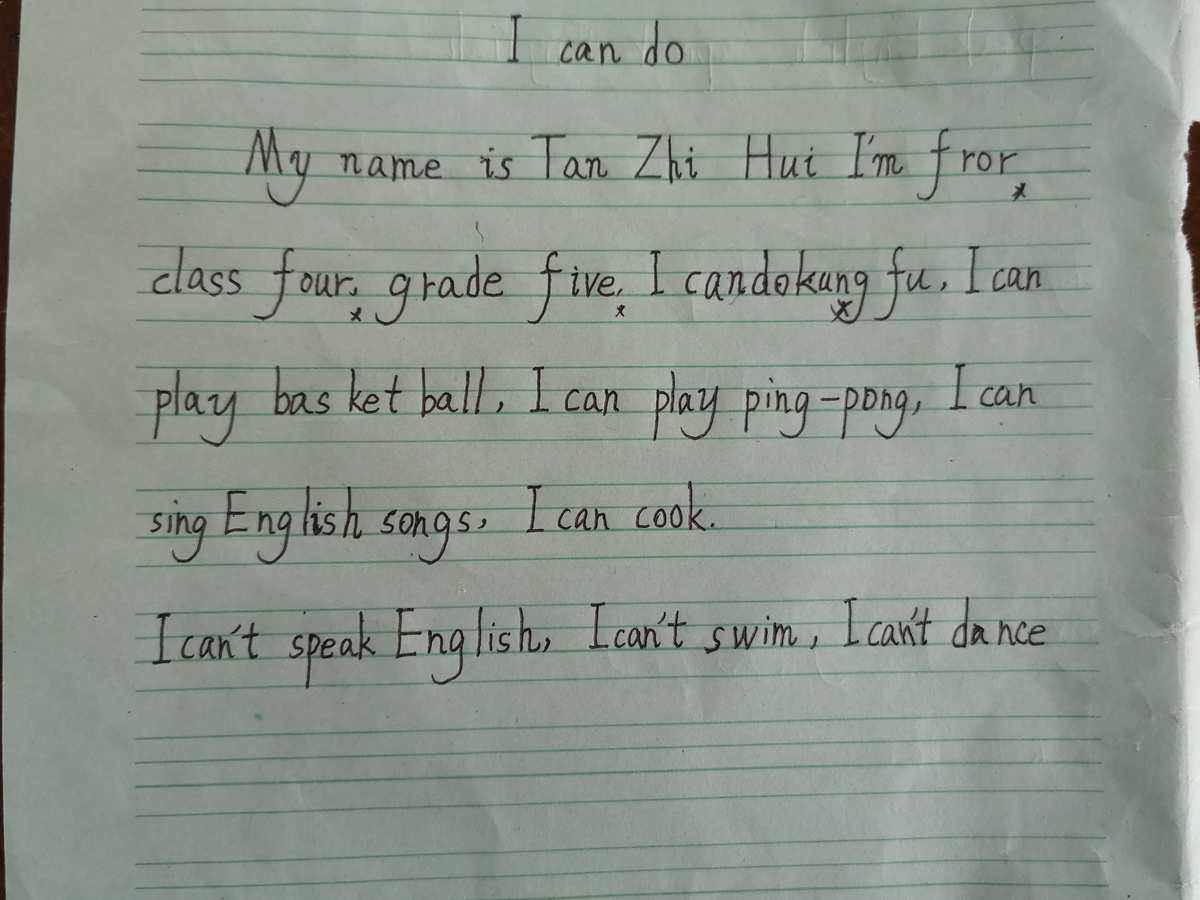 I can do
My name is Tan Zhi Hui I'm fror
class four, grade five, I candokung fu, I can
play basketball, I can play ping-pong, I can
sing English songs, I can cook.
I can't speak English, I can't swim, I can't dance